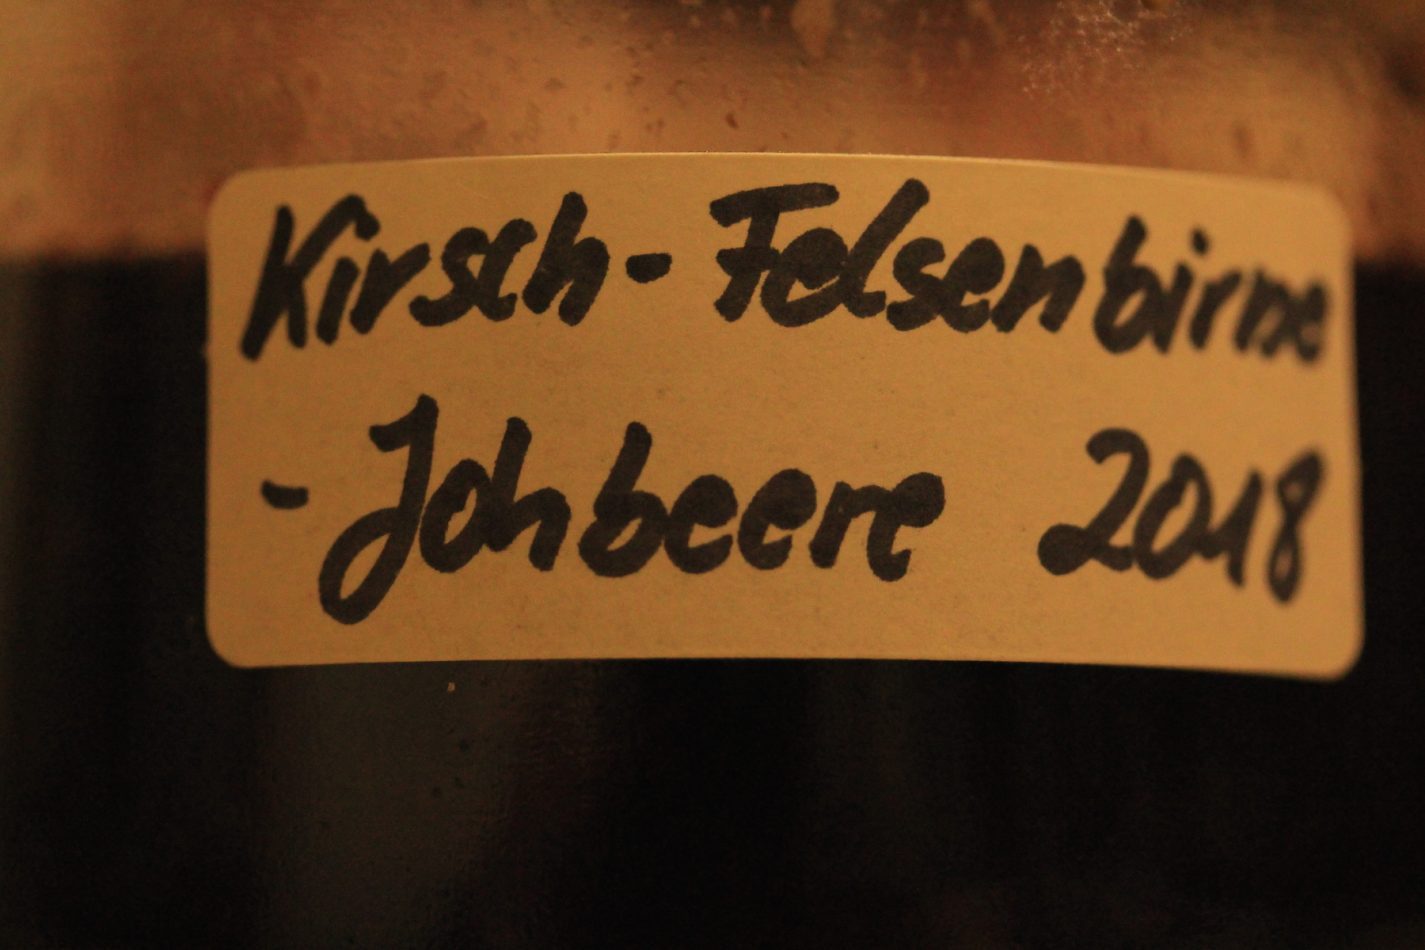 Kirsch-Felsenbirne
-Johbeere 2018